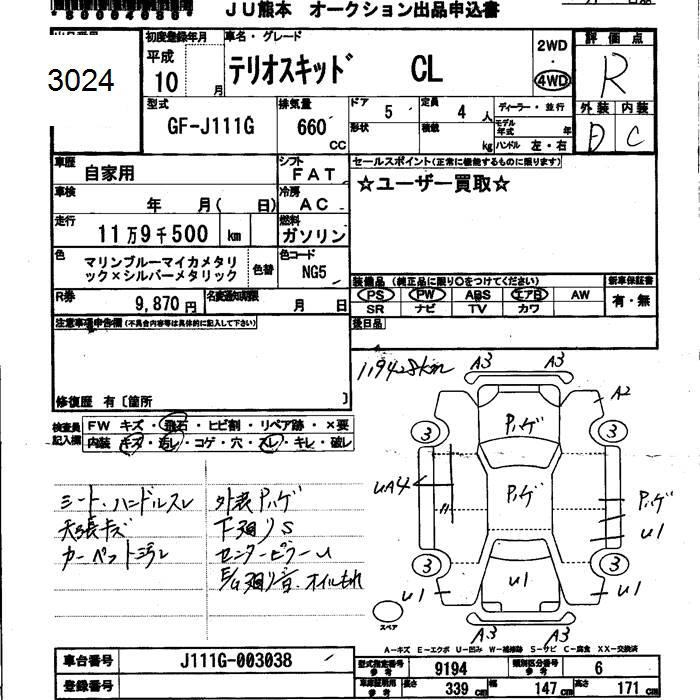 JU熊本 オークション出品申込書
3024
初度登録年月 車名・グレード 評価点
平成 10 月 テリオスキッド CL 2WD・4WD R
型式 排気量 ドア 5 定員 4 人 ディーラー・並行 外装 内装
GF-J111G 660 CC 形状 積載 kg モデル年式 年 D C
ハンドル 左・右
車歴 自家用 シフト FAT セールスポイント(正常に機能するものに限ります)
車検 年 月( 日) 冷房 AC ☆ユーザー買取☆
走行 11万9千500 km 燃料 ガソリン
色 マリンブルーマイカメタリ 色替 色コード
ック×シルバーメタリック NG5
装備品 (純正品に限り〇をつけてください) 新車保証書
R券 9,870円 名変通知期限 月 日 PS PW ABS エアB AW 有・無
SR ナビ TV カワ
注意事項申告欄(不具合内容等は具体的に記入して下さい) 後日品
修復歴 有〔箇所 〕
検査員 FW キズ・飛石・ヒビ割・リペア跡・×要
記入欄 内装 キズ・汚レ・コゲ・穴・スレ・キレ・破レ
119428km
A3 A3
A2
Pハゲ
3 3
UA4 Pハゲ Pハゲ
〃 U1
3 3
U1 U1 U1
A3 A3
スペア
シート、ハンドルスレ 外装Pハゲ
天張キズ 下廻りS
カーペット汚レ センターピラーU
E/G廻り音、オイルもれ
A-キズ E-エクボ U-凹み W-補修跡 S-サビ C-腐食 XX-交換済
車台番号 J111G-003038 型式指定番号 参考 9194 類別区分番号 参考 6
登録番号 車庫証明用 参考 長さ 339 cm 幅 147 cm 高さ 171 cm